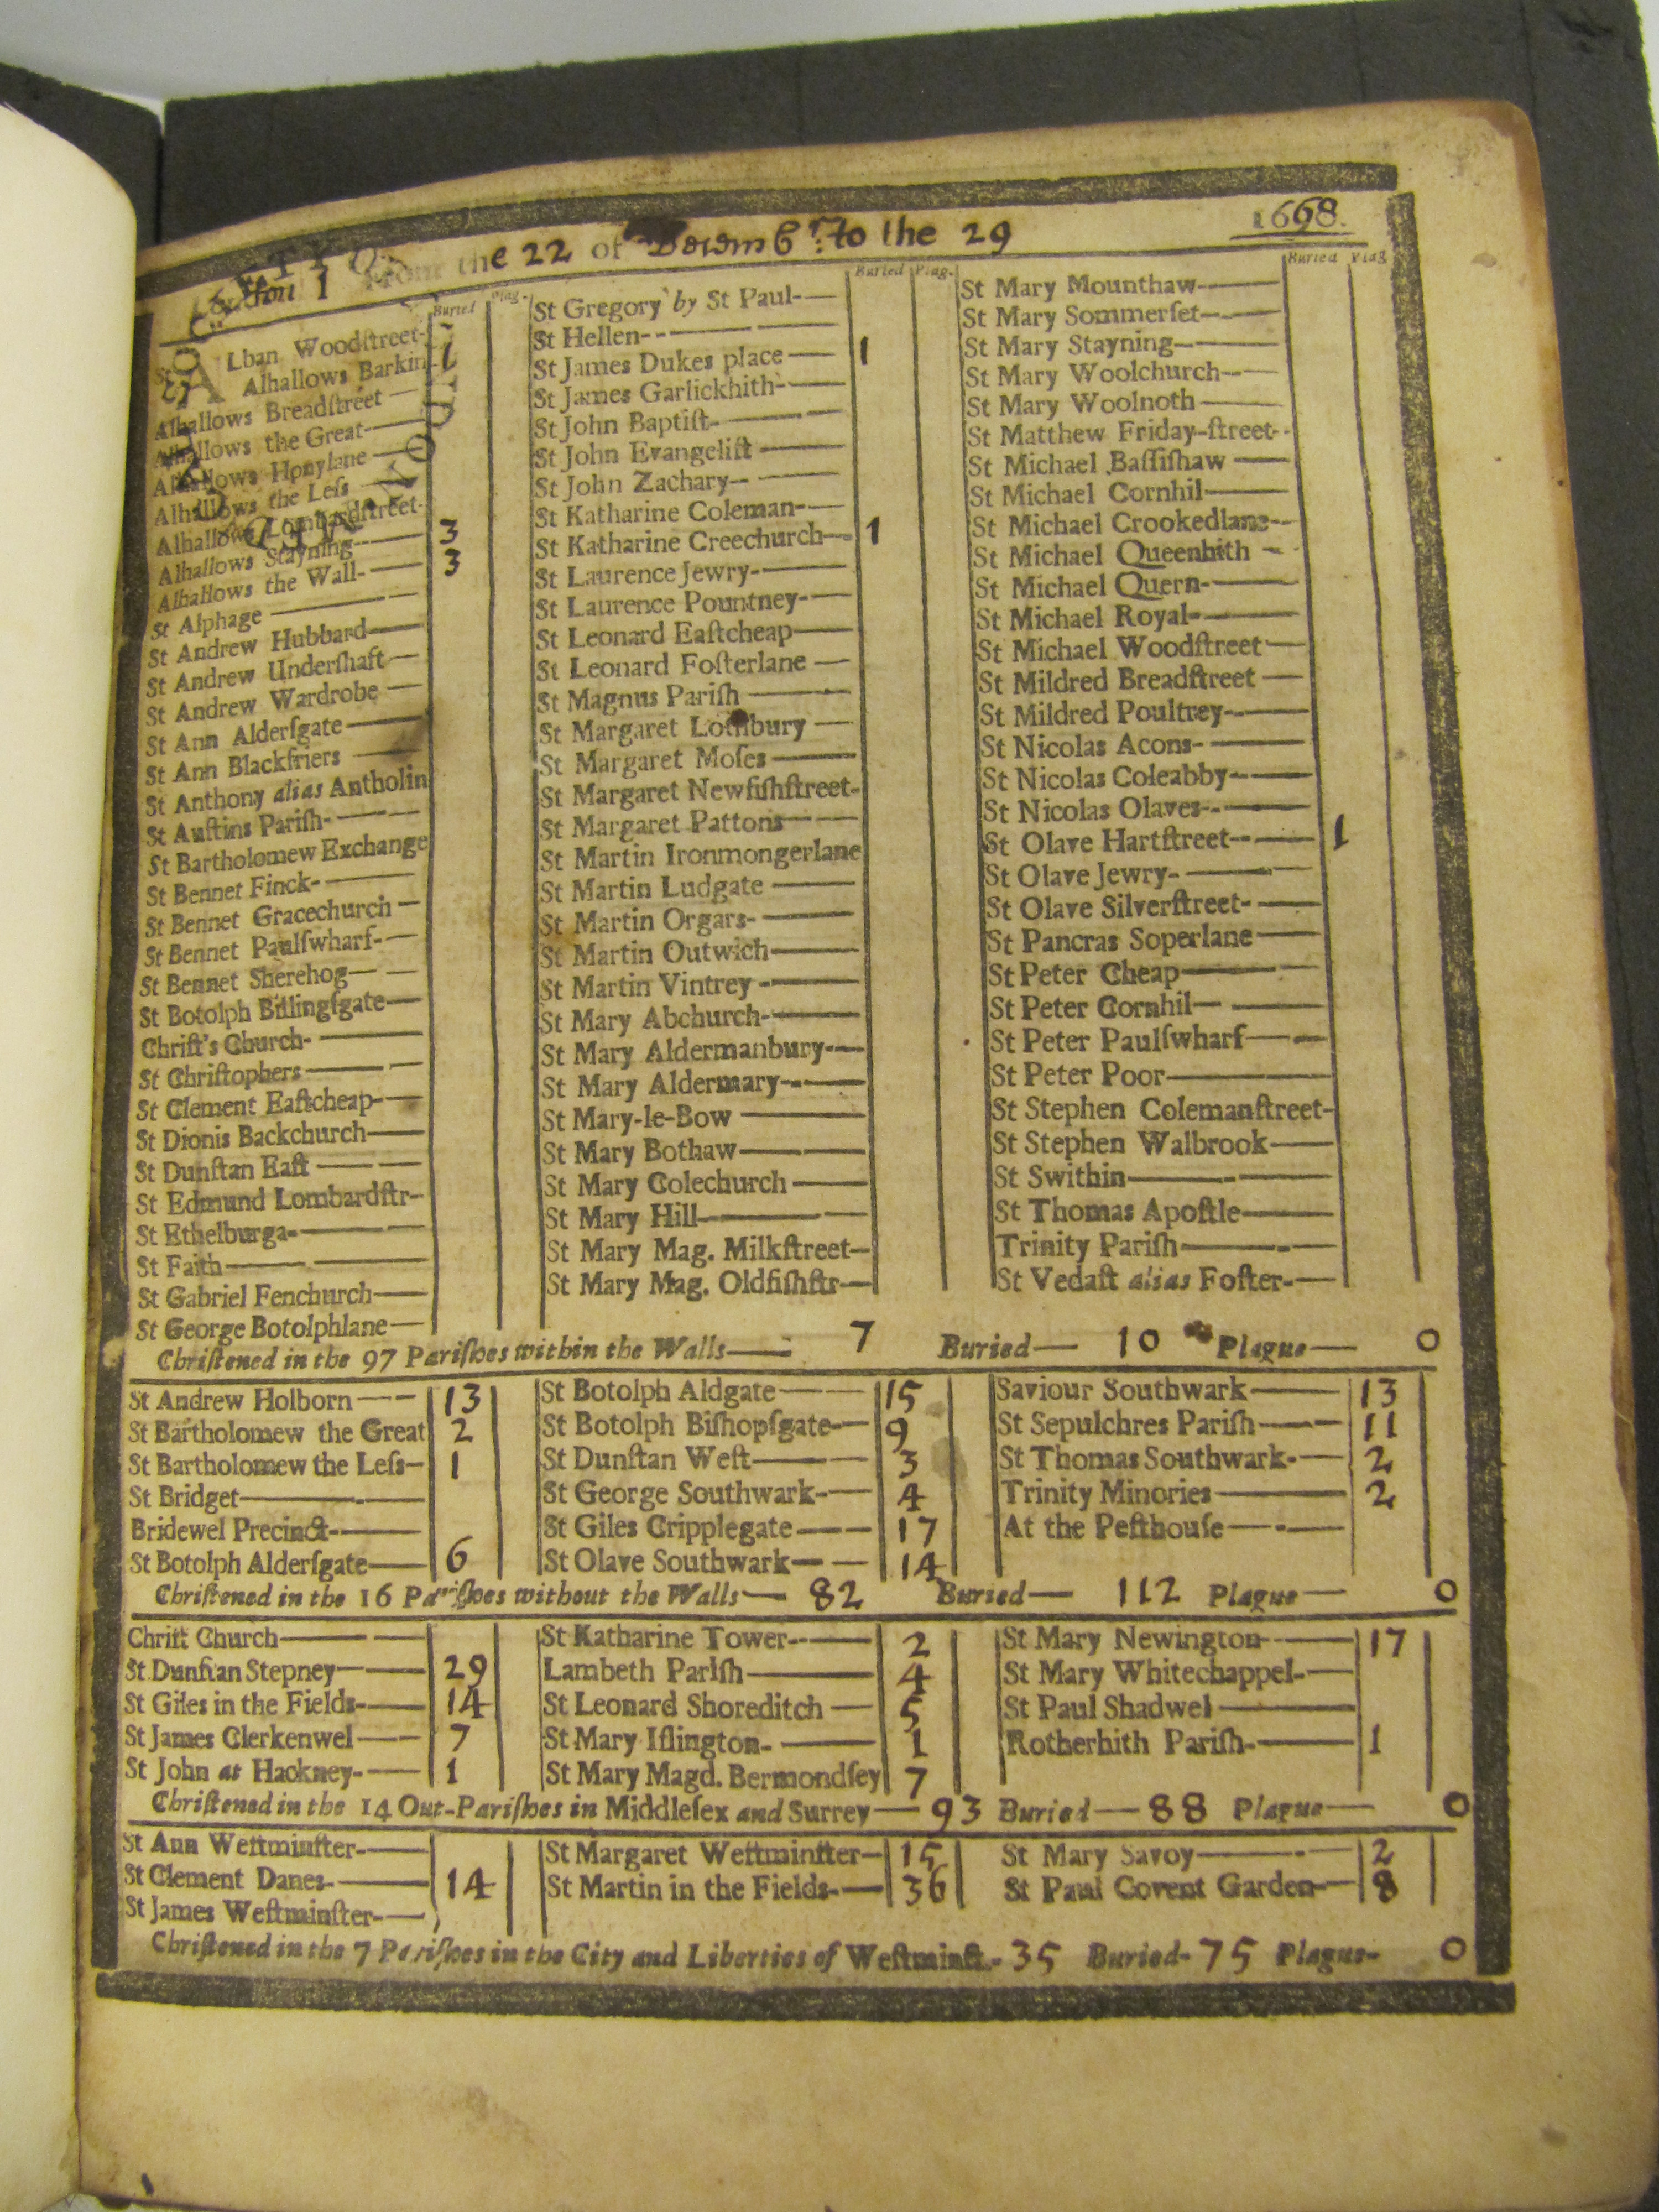 From the 22 of Decemb^r: to the 29 1668.
Lon 1
Buried Plag. Buried Plag. Buried Plag
St ALban Woodſtreet-
Alhallows Barkin 1
Alhallows Breadſtreet —
Alhallows the Great—
Alhallows Honylane —
Alhallows the Leſs —
Alhallows Lombardſtreet-
Alhallows Stayning— 3
Alhallows the Wall— 3
St Alphage ——
St Andrew Hubbard—
St Andrew Underſhaft—
St Andrew Wardrobe —
St Ann Alderſgate ——
St Ann Blackfriers ——
St Anthony alias Antholin
St Auſtins Pariſh-——
St Bartholomew Exchange
St Bennet Finck-——
St Bennet Gracechurch —
St Bennet Paulſwharf-—
St Bennet Sherehog— —
St Botolph Billingſgate—
Chriſt's Church- ——
St Chriſtophers——
St Clement Eaſtcheap-—
St Dionis Backchurch—
St Dunſtan Eaſt ——
St Edmund Lombardſtr-
St Ethelburga-——
St Faith——
St Gabriel Fenchurch—
St George Botolphlane—
St Gregory by St Paul-—
St Hellen--——
St James Dukes place — 1
St James Garlickhith-—
St John Baptiſt-——
St John Evangeliſt ——
St John Zachary-- ——
St Katharine Coleman-—
St Katharine Creechurch— 1
St Laurence Jewry-——
St Laurence Pountney-—
St Leonard Eaſtcheap——
St Leonard Foſterlane —
St Magnus Pariſh ——
St Margaret Lothbury —
St Margaret Moſes ——
St Margaret Newfiſhſtreet-
St Margaret Pattons——
St Martin Ironmongerlane
St Martin Ludgate ——
St Martin Orgars-——
St Martin Outwich——
St Martin Vintrey -——
St Mary Abchurch-——
St Mary Aldermanbury-—
St Mary Aldermary--—
St Mary-le-Bow ——
St Mary Bothaw——
St Mary Colechurch ——
St Mary Hill——
St Mary Mag. Milkſtreet—
St Mary Mag. Oldfiſhſtr—
St Mary Mounthaw——
St Mary Sommerſet——
St Mary Stayning——
St Mary Woolchurch-—
St Mary Woolnoth ——
St Matthew Friday-ſtreet--
St Michael Baſſiſhaw ——
St Michael Cornhil——
St Michael Crookedlane--
St Michael Queenhith —
St Michael Quern-——
St Michael Royal-——
St Michael Woodſtreet—
St Mildred Breadſtreet —
St Mildred Poultrey-—
St Nicolas Acons-——
St Nicolas Coleabby-—
St Nicolas Olaves--——
St Olave Hartſtreet--— 1
St Olave Jewry-——
St Olave Silverſtreet-—
St Pancras Soperlane——
St Peter Cheap——
St Peter Cornhil— ——
St Peter Paulſwharf——
St Peter Poor——
St Stephen Colemanſtreet-
St Stephen Walbrook——
St Swithin——
St Thomas Apoſtle——
Trinity Pariſh——
St Vedaſt alias Foſter-—
Chriſtened in the 97 Pariſhes within the Walls— 7 Buried— 10 Plague— 0
St Andrew Holborn—— 13
St Bartholomew the Great 2
St Bartholomew the Leſs— 1
St Bridget——
Bridewel Precinct-——
St Botolph Alderſgate— 6
St Botolph Aldgate—— 15
St Botolph Biſhopſgate-— 9
St Dunſtan Weſt—— 3
St George Southwark-— 4
St Giles Cripplegate—— 17
St Olave Southwark—— 14
Saviour Southwark—— 13
St Sepulchres Pariſh—— 11
St Thomas Southwark-— 2
Trinity Minories—— 2
At the Peſthouſe——
Chriſtened in the 16 Pariſhes without the Walls— 82 Buried— 112 Plague— 0
Chriſt Church——
St Dunſtan Stepney—— 29
St Giles in the Fields-— 14
St James Clerkenwel—— 7
St John at Hackney-— 1
St Katharine Tower-—— 2
Lambeth Pariſh—— 4
St Leonard Shoreditch — 5
St Mary Iſlington- —— 1
St Mary Magd. Bermondſey 7
St Mary Newington-—— 17
St Mary Whitechappel-—
St Paul Shadwel ——
Rotherhith Pariſh-—— 1
Chriſtened in the 14 Out-Pariſhes in Middleſex and Surrey— 93 Buried— 88 Plague— 0
St Ann Weſtminſter-——
St Clement Danes-—— 14
St James Weſtminſter-—
St Margaret Weſtminſter— 15
St Martin in the Fields-— 36
St Mary Savoy—— 2
St Paul Covent Garden-— 8
Chriſtened in the 7 Pariſhes in the City and Liberties of Weſtminſt.- 35 Buried- 75 Plague- 0